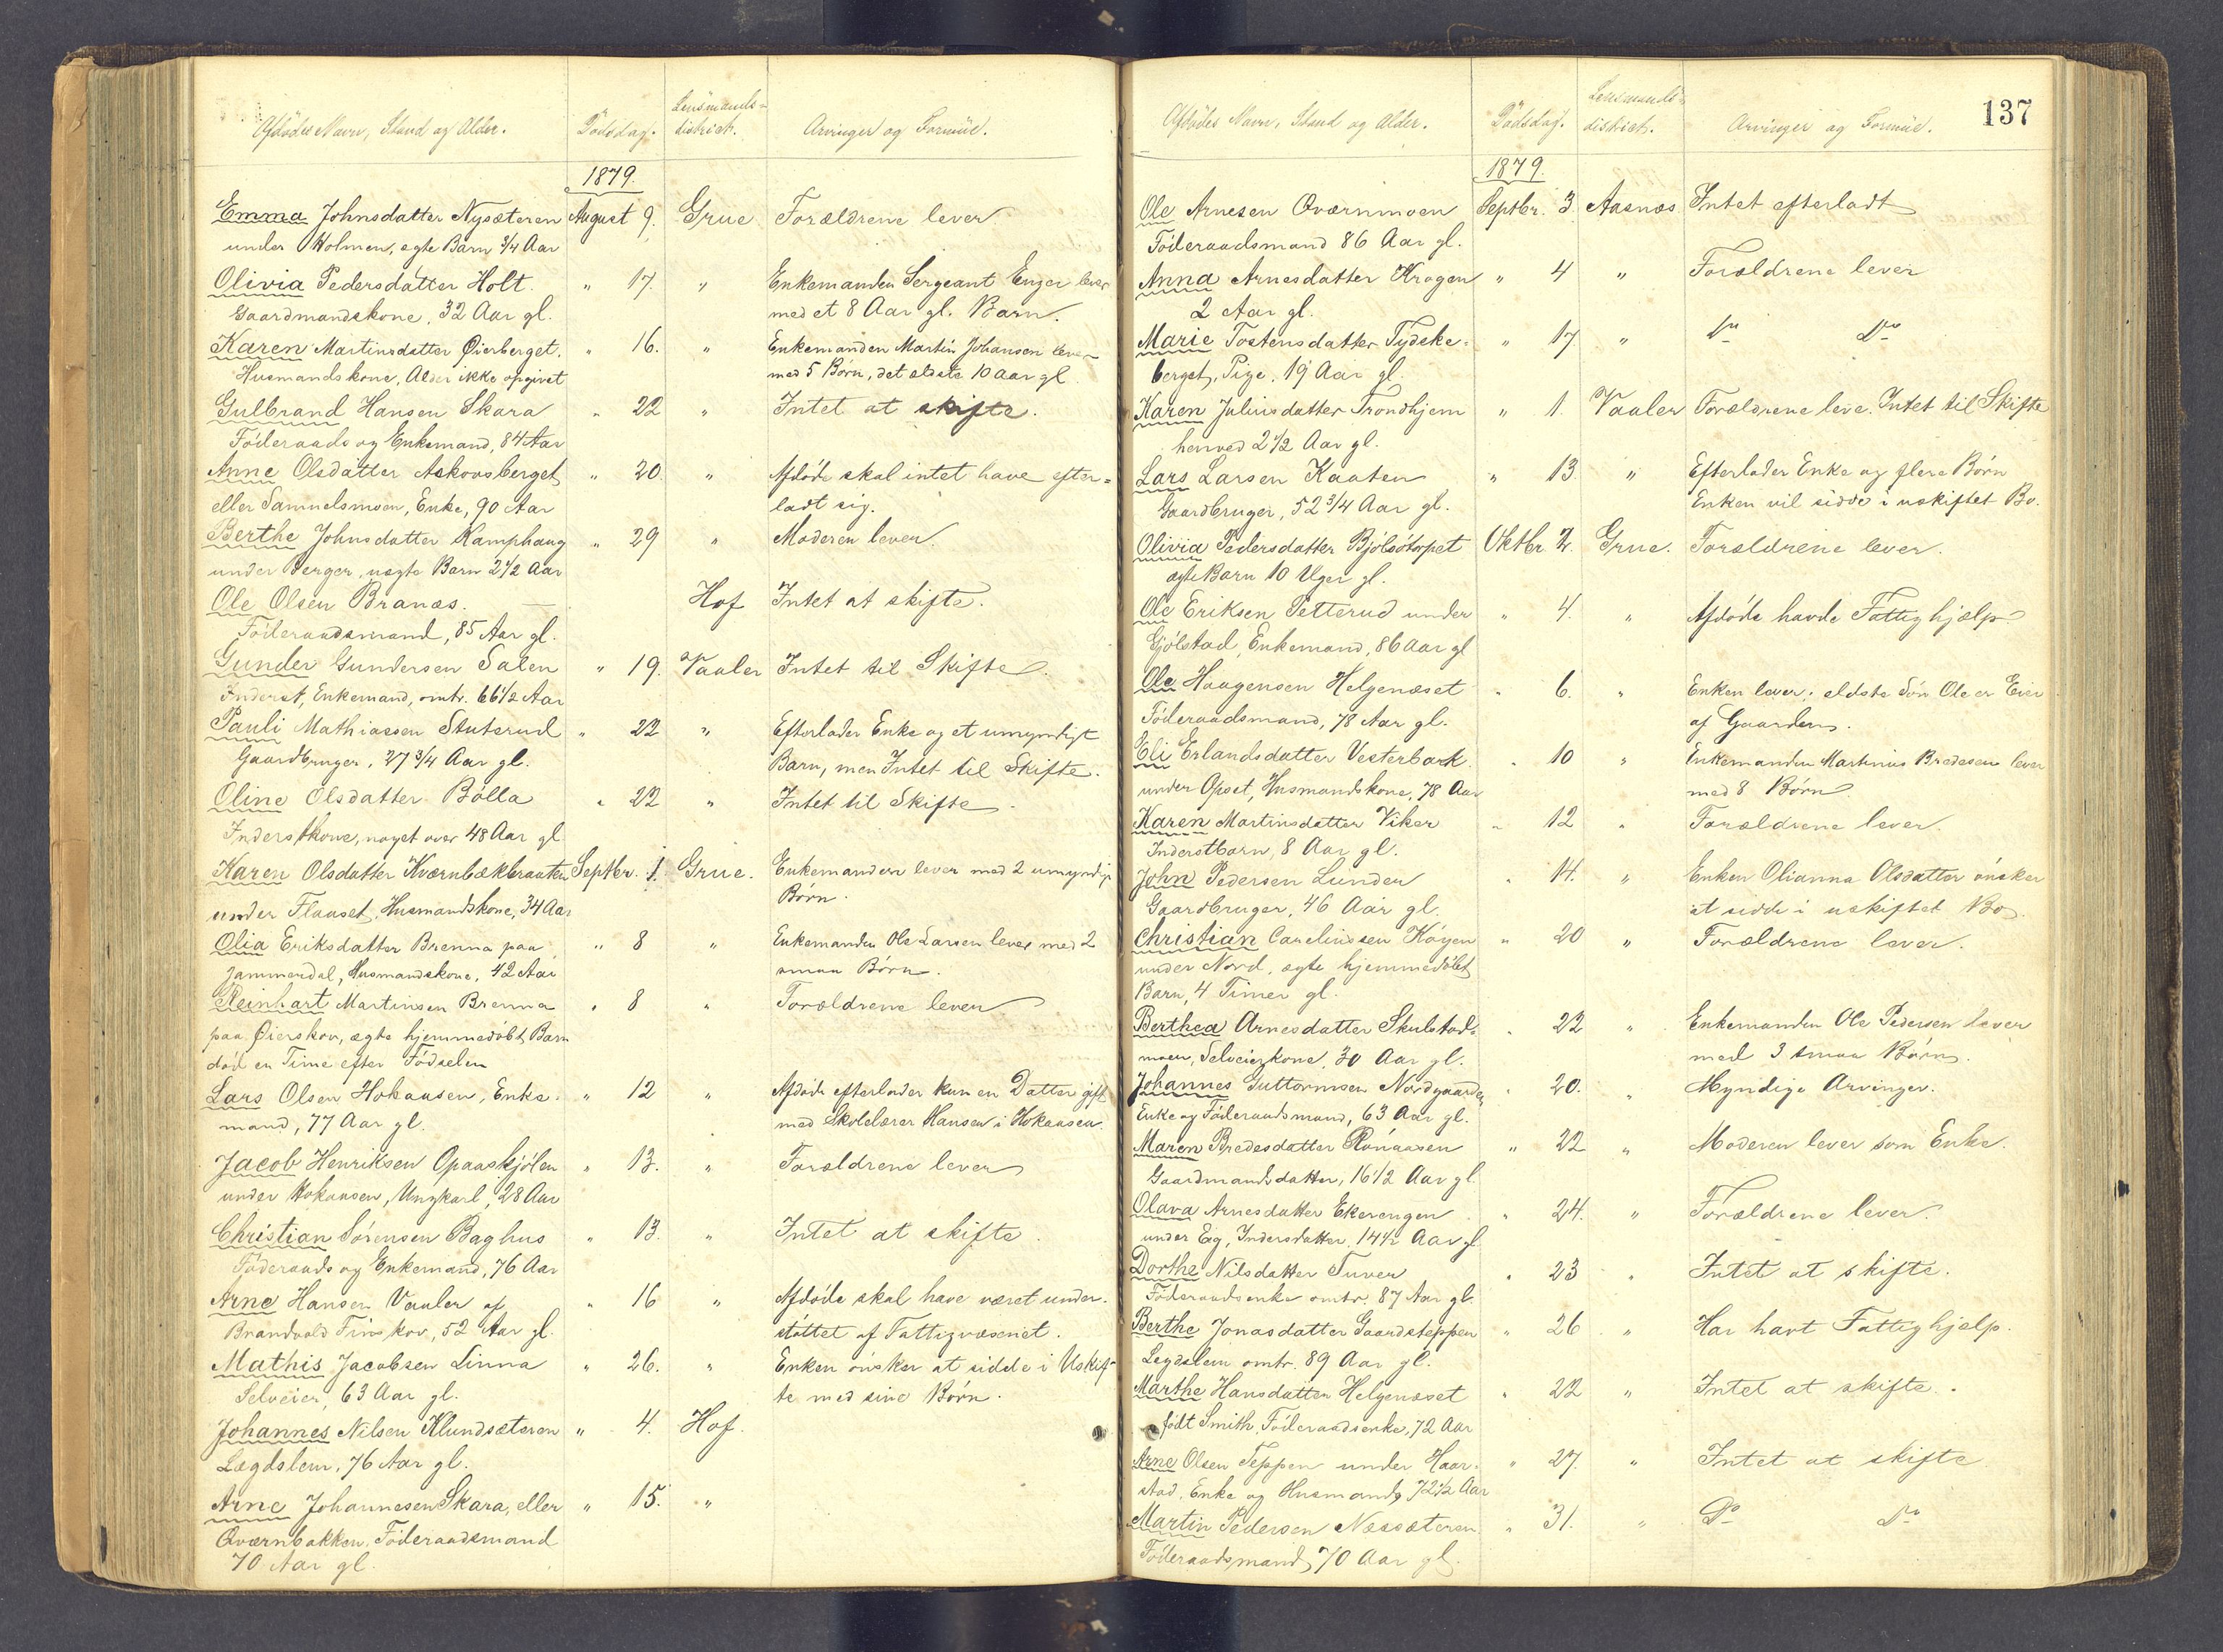 Afdødes Navn, Stand og Alder. Dødsdag. Lensmands-
district. Arvinger og Formue.
1879.
Emma Johnsdatter Nysæteren August 9. Grue Forældrene lever
under Holmen, ægte Barn 3/4 Aar
Olivia Pedersdatter Holt. " 17. " Enkemanden Sergeant Enger lever
Gaardmandskone, 32 Aar gl. med et 8 Aar gl. Barn.
Karen Martinsdatter Øierberget. " 16. " Enkemanden Martin Johansen lever
Husmandskone, Alder ikke opgivet med 5 Børn, det ældste 10 Aar gl
Gulbrand Hansen Skara " 22 " Intet at skifte.
Föderaads og Enkemand, 84 Aar
Anne Olsdatter Askovsberget " 20. " Afdøde skal intet have efter=
eller Samuelsmoen, Enke, 90 Aar ladt sig.
Berthe Johnsdatter Kamphaug " 29 " Moderen lever.
under Berger, uægte Barn 2 1/2 Aar
Ole Olsen Branæs. — Hof Intet at skifte.
Föderaadsmand, 85 Aar gl.
Gunder Gundersen Salen " 19. Vaaler Intet til Skifte.
Inderst, Enkemand, omtr. 66 1/2 Aar
Pauli Mathiassen Stuterud " 22 " Efterlader Enke og et umyndigt
Gaardbruger, 27 3/4 Aar gl. Barn, men Intet til Skifte.
Oline Olsdatter Bölla " 22 " Intet til Skifte
Inderstkone, noget over 48 Aar gl.
Karen Olsdatter Kværnbækbraaten Septbr. 1. Grue. Enkemanden lever med 2 umyndige
under Flaaset, Husmandskone, 34 Aar Børn.
Olia Eriksdatter Brenna paa " 8 " Enkemanden Ole Larsen lever med 2
Jammerdal, Husmandskone, 42 Aar smaa Børn.
Reinhart Martinsen Brenna " 8 " Forældrene lever
paa Øierskov, ægte hjemmedøbt Barn
död en Time efter Födselen
Lars Olsen Hokaasen, Enke= " 12 " Afdøde efterlader kun en Datter gift
mand, 77 Aar gl. med Skolelærer Hansen i Hokaasen.
Jacob Henriksen Opaaskjölen " 13. " Forældrene lever
under Hokaasen, Ungkarl, 28 Aar
Christian Sörensen Baghus " 13. " Intet at skifte.
Föderaads og Enkemand, 76 Aar
Arne Hansen Vaaler af " 16 " Afdøde skal have været under-
Brandvold Finskov, 52 Aar gl. støttet af Fattigvæsenet.
Mathis Jacobsen Linna " 26. " Enken ønsker at sidde i Uskif-
Selveier, 63 Aar gl. te med sine Børn.
Johannes Nilsen Klundsæteren " 4. Hof.
Lægdslem, 76 Aar gl.
Arne Johannesen Skara, eller " 15. "
Qværnbakken, Föderaadsmand
70 Aar gl.
137
Afdødes Navn, Stand og Alder. Dødsdag. Lensmands-
district. Arvinger og Formue.
1879.
Ole Arnesen Qværnmoen Septbr. 3. Aasnæs. Intet efterladt
Föderaadsmand 86 Aar gl.
Anna Arnesdatter Kragen " 4 " Forældrene lever
2 Aar gl.
Marie Tostensdatter Tydske= " 17 " Do Do
berget, Pige, 19 Aar gl.
Karen Juliusdatter Trondhjem " 1. Vaaler Forældrene leve. Intet til Skifte
henved 2 1/2 Aar gl.
Lars Larsen Kaaten " 13. " Efterlader Enke og flere Børn
Gaardbruger, 52 3/4 Aar gl. Enken vil sidde i uskiftet Bo.
Olivia Pedersdatter Bjölsötorpet Oktbr 2. Grue. Forældrene lever.
ægte Barn 10 Uger gl.
Ole Eriksen Petterud under " 4. " Afdøde havde Fattighjælp
Gjölstad, Enkemand, 86 Aar gl
Ole Haagensen Helgenæset " 6. " Enken lever; ældste Søn Ole er Eier
Föderaadsmand, 78 Aar gl. af Gaarden.
Eli Erlandsdatter Vesterbæk " 10 " Enkemanden Martinus Bredesen lever
under Opset, Husmandskone, 78 Aar med 8 Børn
Karen Martinsdatter Viker " 12 " Forældrene lever.
Inderstbarn, 8 Aar gl.
John Pedersen Lunder " 14. " Enken Olianna Olsdatter ønsker
Gaardbruger, 46 Aar gl. at sidde i uskiftet Bo.
Christian Carelinssen Höyen " 20 " Forældrene lever.
under Nord, ægte hjemmedøbt
Barn, 4 Timer gl.
Berthea Arnesdatter Skulstad- " 22 " Enkemanden Ole Pedersen lever
moen, Selveierkone, 30 Aar gl. med 3 smaa Børn.
Johannes Guttormsen Nordgaarden " 20. " Myndige Arvinger.
Enke og Föderaadsmand, 63 Aar gl.
Maren Bredesdatter Rönaasen " 22 " Moderen lever som Enke.
Gaardmandsdatter, 16 1/2 Aar gl.
Olava Arnesdatter Ekerengen " 24. " Forældrene lever.
under Eg, Indersdatter, 14 1/2 Aar gl
Dorthe Nilsdatter Tuver " 23 " Intet at skifte.
Föderaadsenke omtr. 87 Aar gl.
Berthe Jonasdatter Gaardsteppen " 26 " Har havt Fattighjælp.
Lægdslem omtr. 89 Aar gl.
Marthe Hansdatter Helgenæset " 22 " Intet at skifte.
født Smith, Föderaadsenke, 72 Aar
Arne Olsen Teppen under Haar= " 27. " Intet at skifte
stad, Enke og Husmand, 72 1/2 Aar
Martin Pedersen Næssæteren " 31. " Do Do
Föderaadsmand, 70 Aar gl.